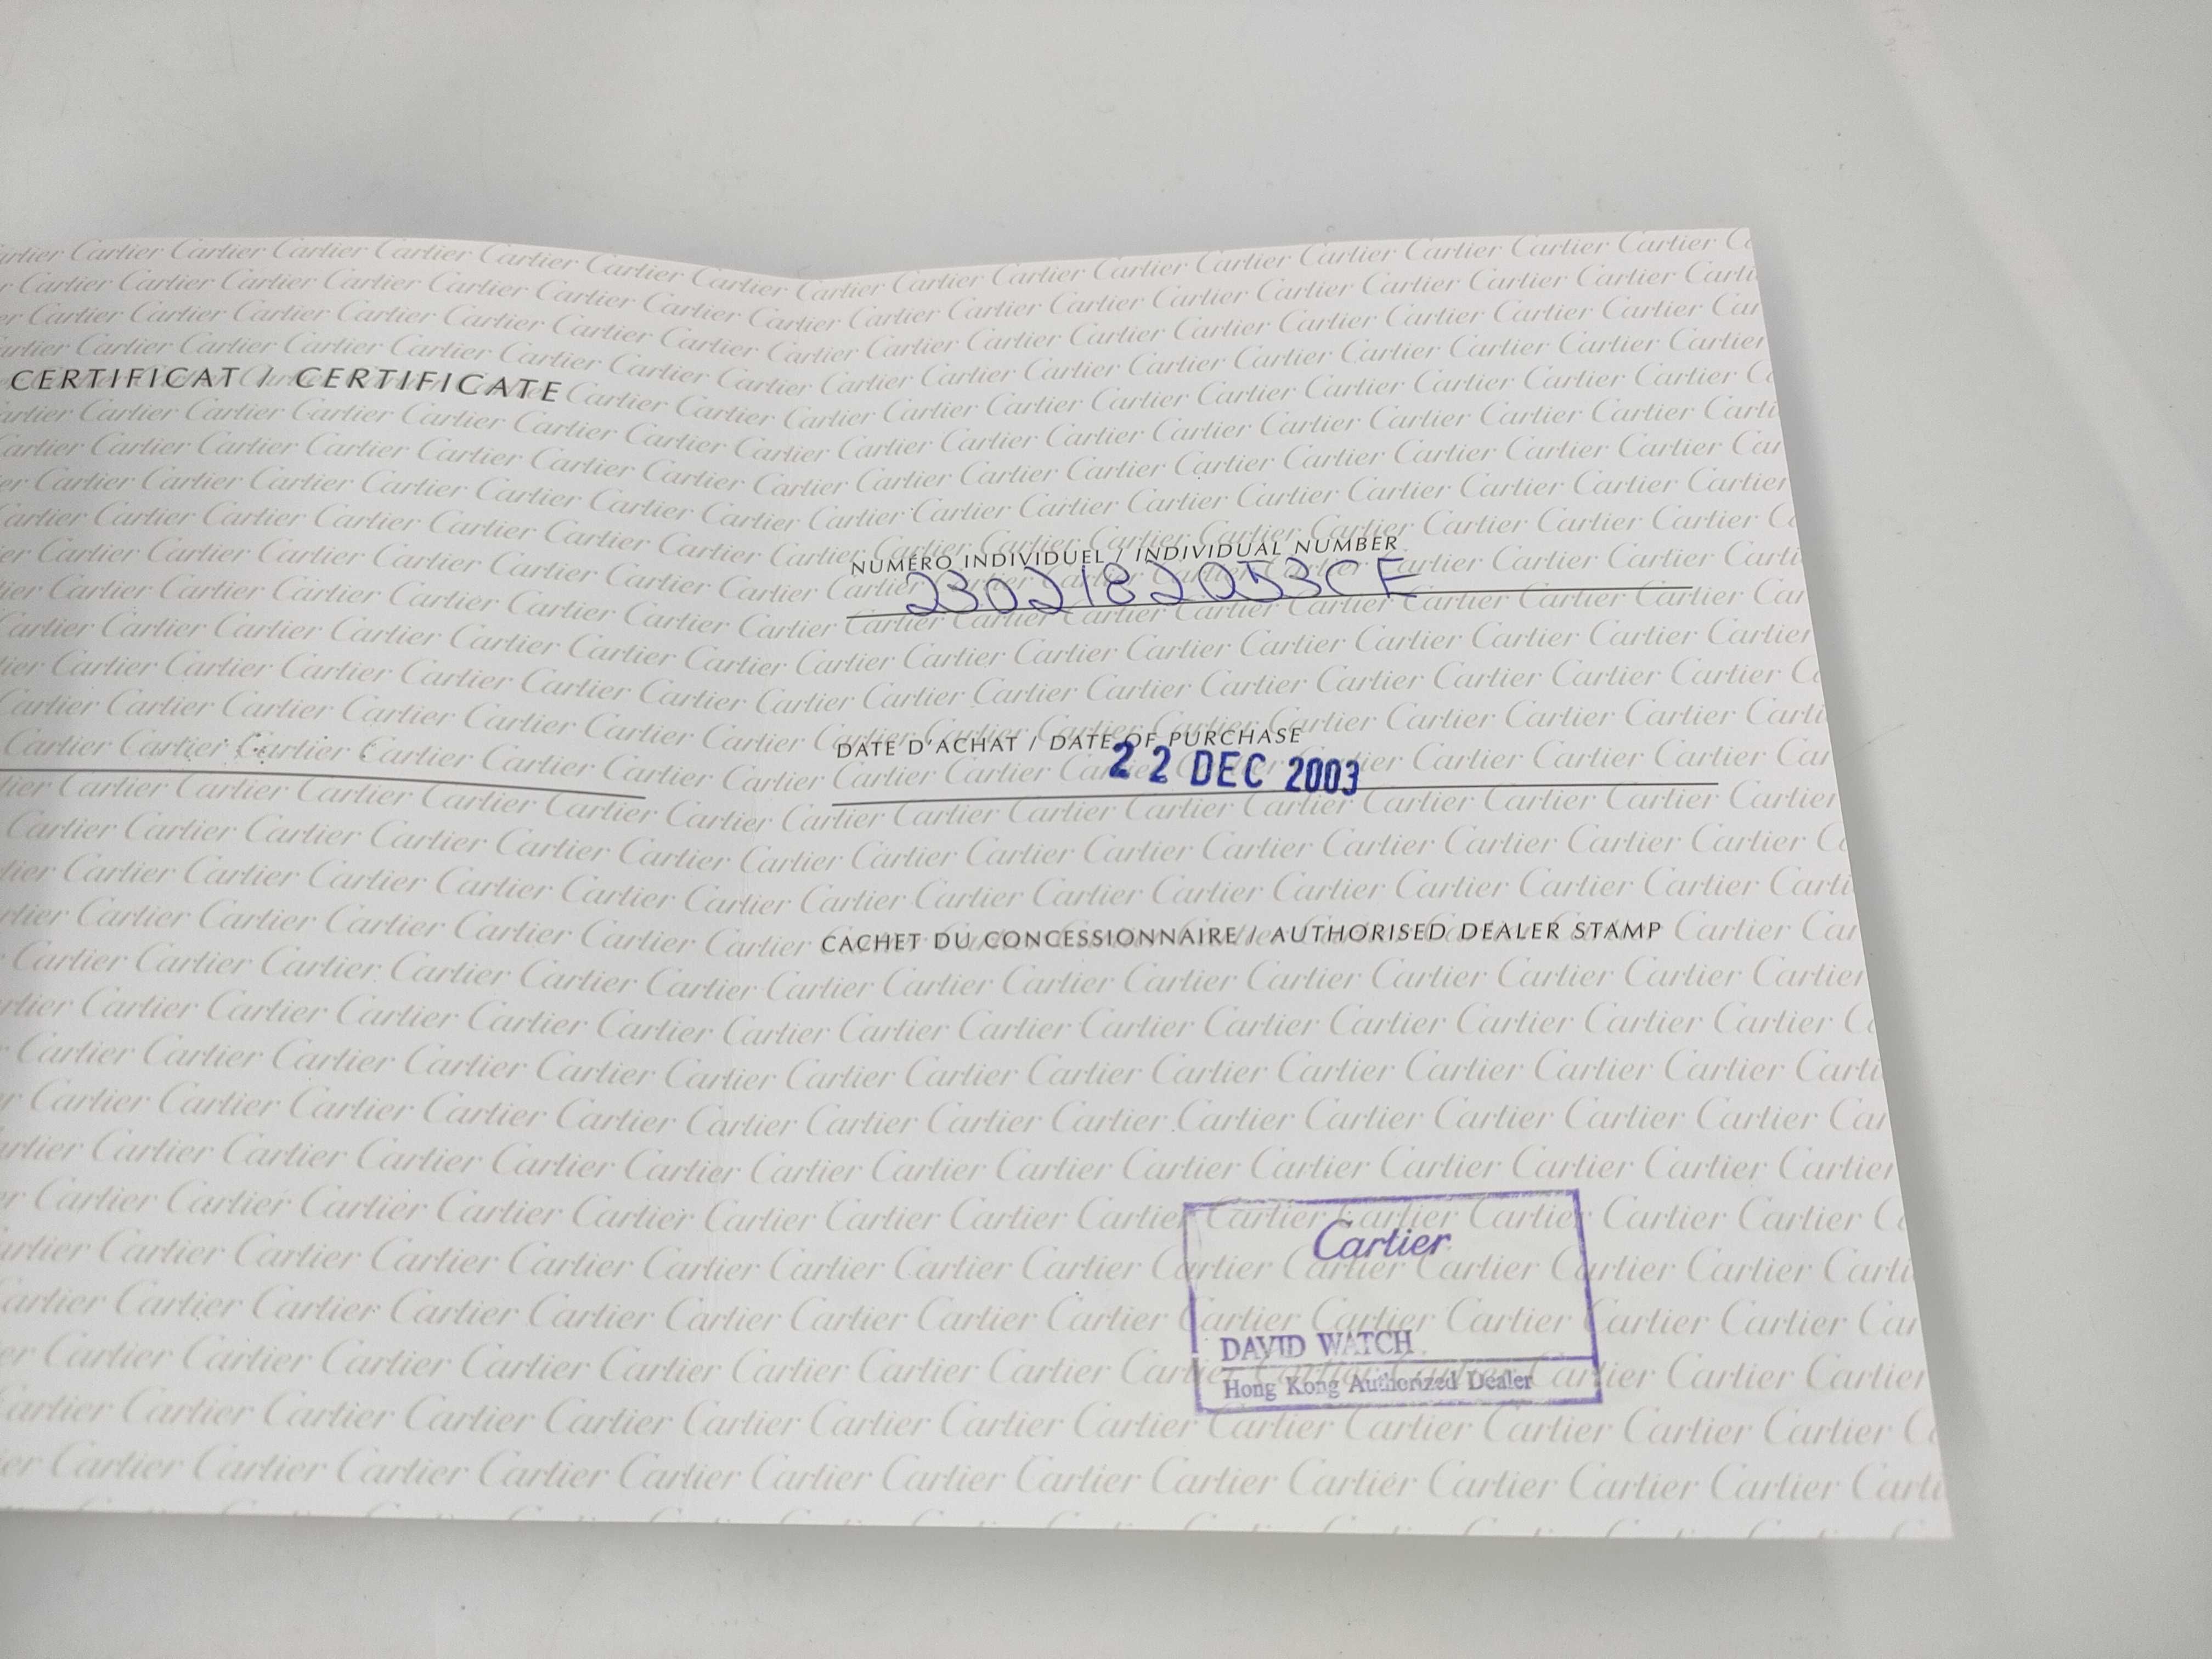 CERTIFICAT / CERTIFICATE
NUMÉRO INDIVIDUEL / INDIVIDUAL NUMBER
2302182053CE
DATE D'ACHAT / DATE OF PURCHASE
22 DEC 2003
CACHET DU CONCESSIONNAIRE / AUTHORISED DEALER STAMP
Cartier
DAVID WATCH
Hong Kong Authorized Dealer